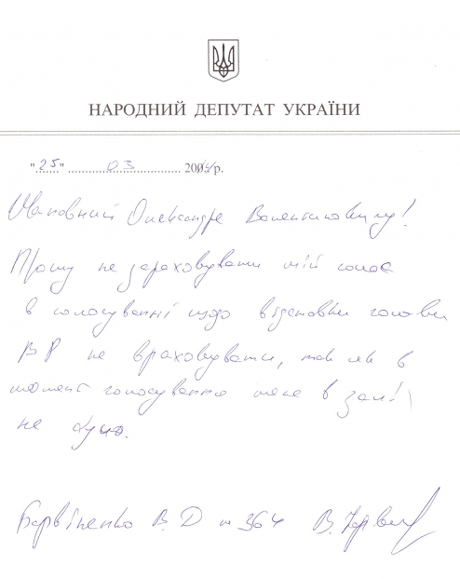 НАРОДНИЙ ДЕПУТАТ УКРАЇНИ
"25" 03 2014р.
Шановний Олександре Валентиновичу!
Прошу не зараховувати мій голос
в голосуванні щодо відставки голови
ВР не враховувати, так як в
момент голосування мене в залі
не було.
Барвіненко В.Д № 364